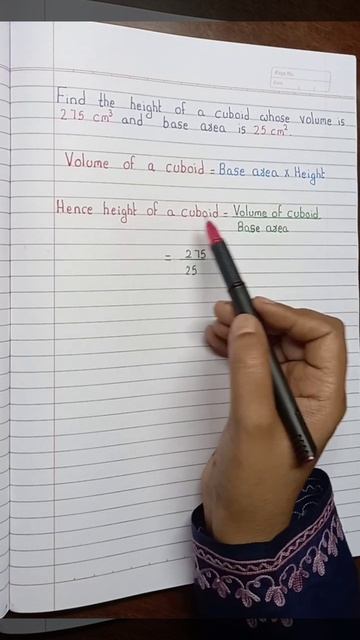 Page No.
Date
Find the height of a cuboid whose volume is
275 cm³ and base area is 25 cm².
Volume of a cuboid = Base area x Height
Hence height of a cuboid = Volume of cuboid
Base area
= 275
25